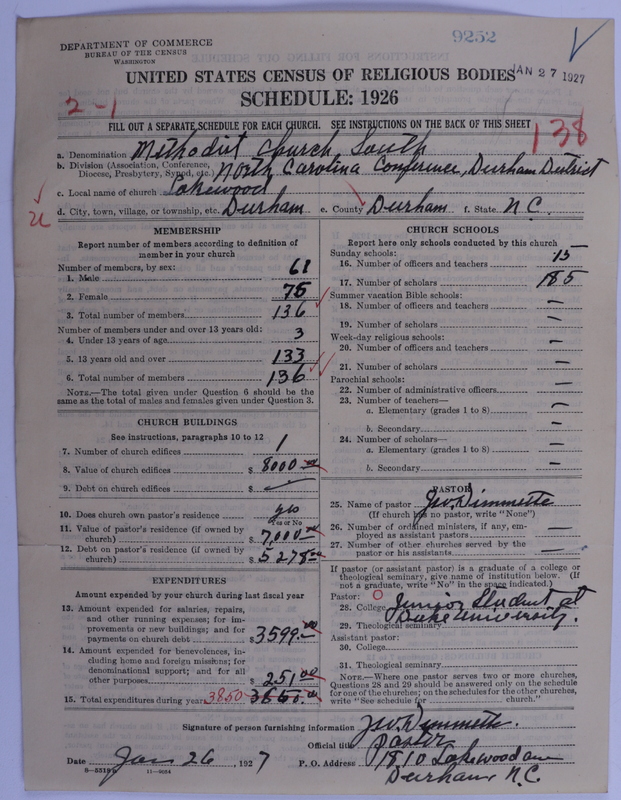 DEPARTMENT OF COMMERCE
BUREAU OF THE CENSUS
WASHINGTON
9252
UNITED STATES CENSUS OF RELIGIOUS BODIES
JAN 27 1927
SCHEDULE: 1926
2-1
FILL OUT A SEPARATE SCHEDULE FOR EACH CHURCH. SEE INSTRUCTIONS ON THE BACK OF THIS SHEET
138
a. Denomination Methodist Church, South
b. Division (Association, Conference, Diocese, Presbytery, Synod, etc.) North Carolina Conference, Durham District
c. Local name of church Lakewood
d. City, town, village, or township, etc. Durham e. County Durham f. State N.C.
MEMBERSHIP
Report number of members according to definition of
member in your church
Number of members, by sex:
1. Male 61
2. Female 75
3. Total number of members 136
Number of members under and over 13 years old:
4. Under 13 years of age 3
5. 13 years old and over 133
6. Total number of members 136
NOTE.—The total given under Question 6 should be
same as the total of males and females given under Question 3.
CHURCH BUILDINGS
See instructions, paragraphs 10 to 12
7. Number of church edifices 1
8. Value of church edifices $ 8000.00
9. Debt on church edifices $
10. Does church own pastor's residence? yes
Yes or No
11. Value of pastor's residence (if owned by
church) $ 7,000.00
12. Debt on pastor's residence (if owned by
church) $ 5278.00
EXPENDITURES
Amount expended by your church during last fiscal year
13. Amount expended for salaries, repairs,
and other running expenses; for im-
provements or new buildings; and for
payments on church debt $ 3599.00
14. Amount expended for benevolences, in-
cluding home and foreign missions; for
denominational support; and for all
other purposes $ 251.00
15. Total expenditures during year 3850
CHURCH SCHOOLS
Report here only schools conducted by this church
Sunday schools:
16. Number of officers and teachers 15
17. Number of scholars 185
Summer vacation Bible schools:
18. Number of officers and teachers —
19. Number of scholars —
Week-day religious schools:
20. Number of officers and teachers —
21. Number of scholars —
Parochial schools:
22. Number of administrative officers —
23. Number of teachers—
a. Elementary (grades 1 to 8) —
b. Secondary —
24. Number of scholars—
a. Elementary (grades 1 to 8) —
b. Secondary —
PASTOR
25. Name of pastor J.W. Dimmette
(If church has no pastor, write "None")
26. Number of ordained ministers, if any, em-
ployed as assistant pastors —
27. Number of other churches served by the
pastor or his assistants —
If pastor (or assistant pastor) is a graduate of a college or
theological seminary, give name of institution below. (If
not a graduate, write "No" in the space indicated.)
Pastor:
28. College Junior Student at
29. Theological seminary Duke University.
Assistant pastor:
30. College
31. Theological seminary
NOTE.—Where one pastor serves two or more churches,
Questions 28 and 29 should be answered only on the schedule
for one of the churches; on the schedules for the other churches,
write "See schedule for church."
Signature of person furnishing information J.W. Dimmette.
Official title pastor
Date Jan 26, 1927 P. O. Address 1810 Lakewood ave
Durham, N.C.
11—9054